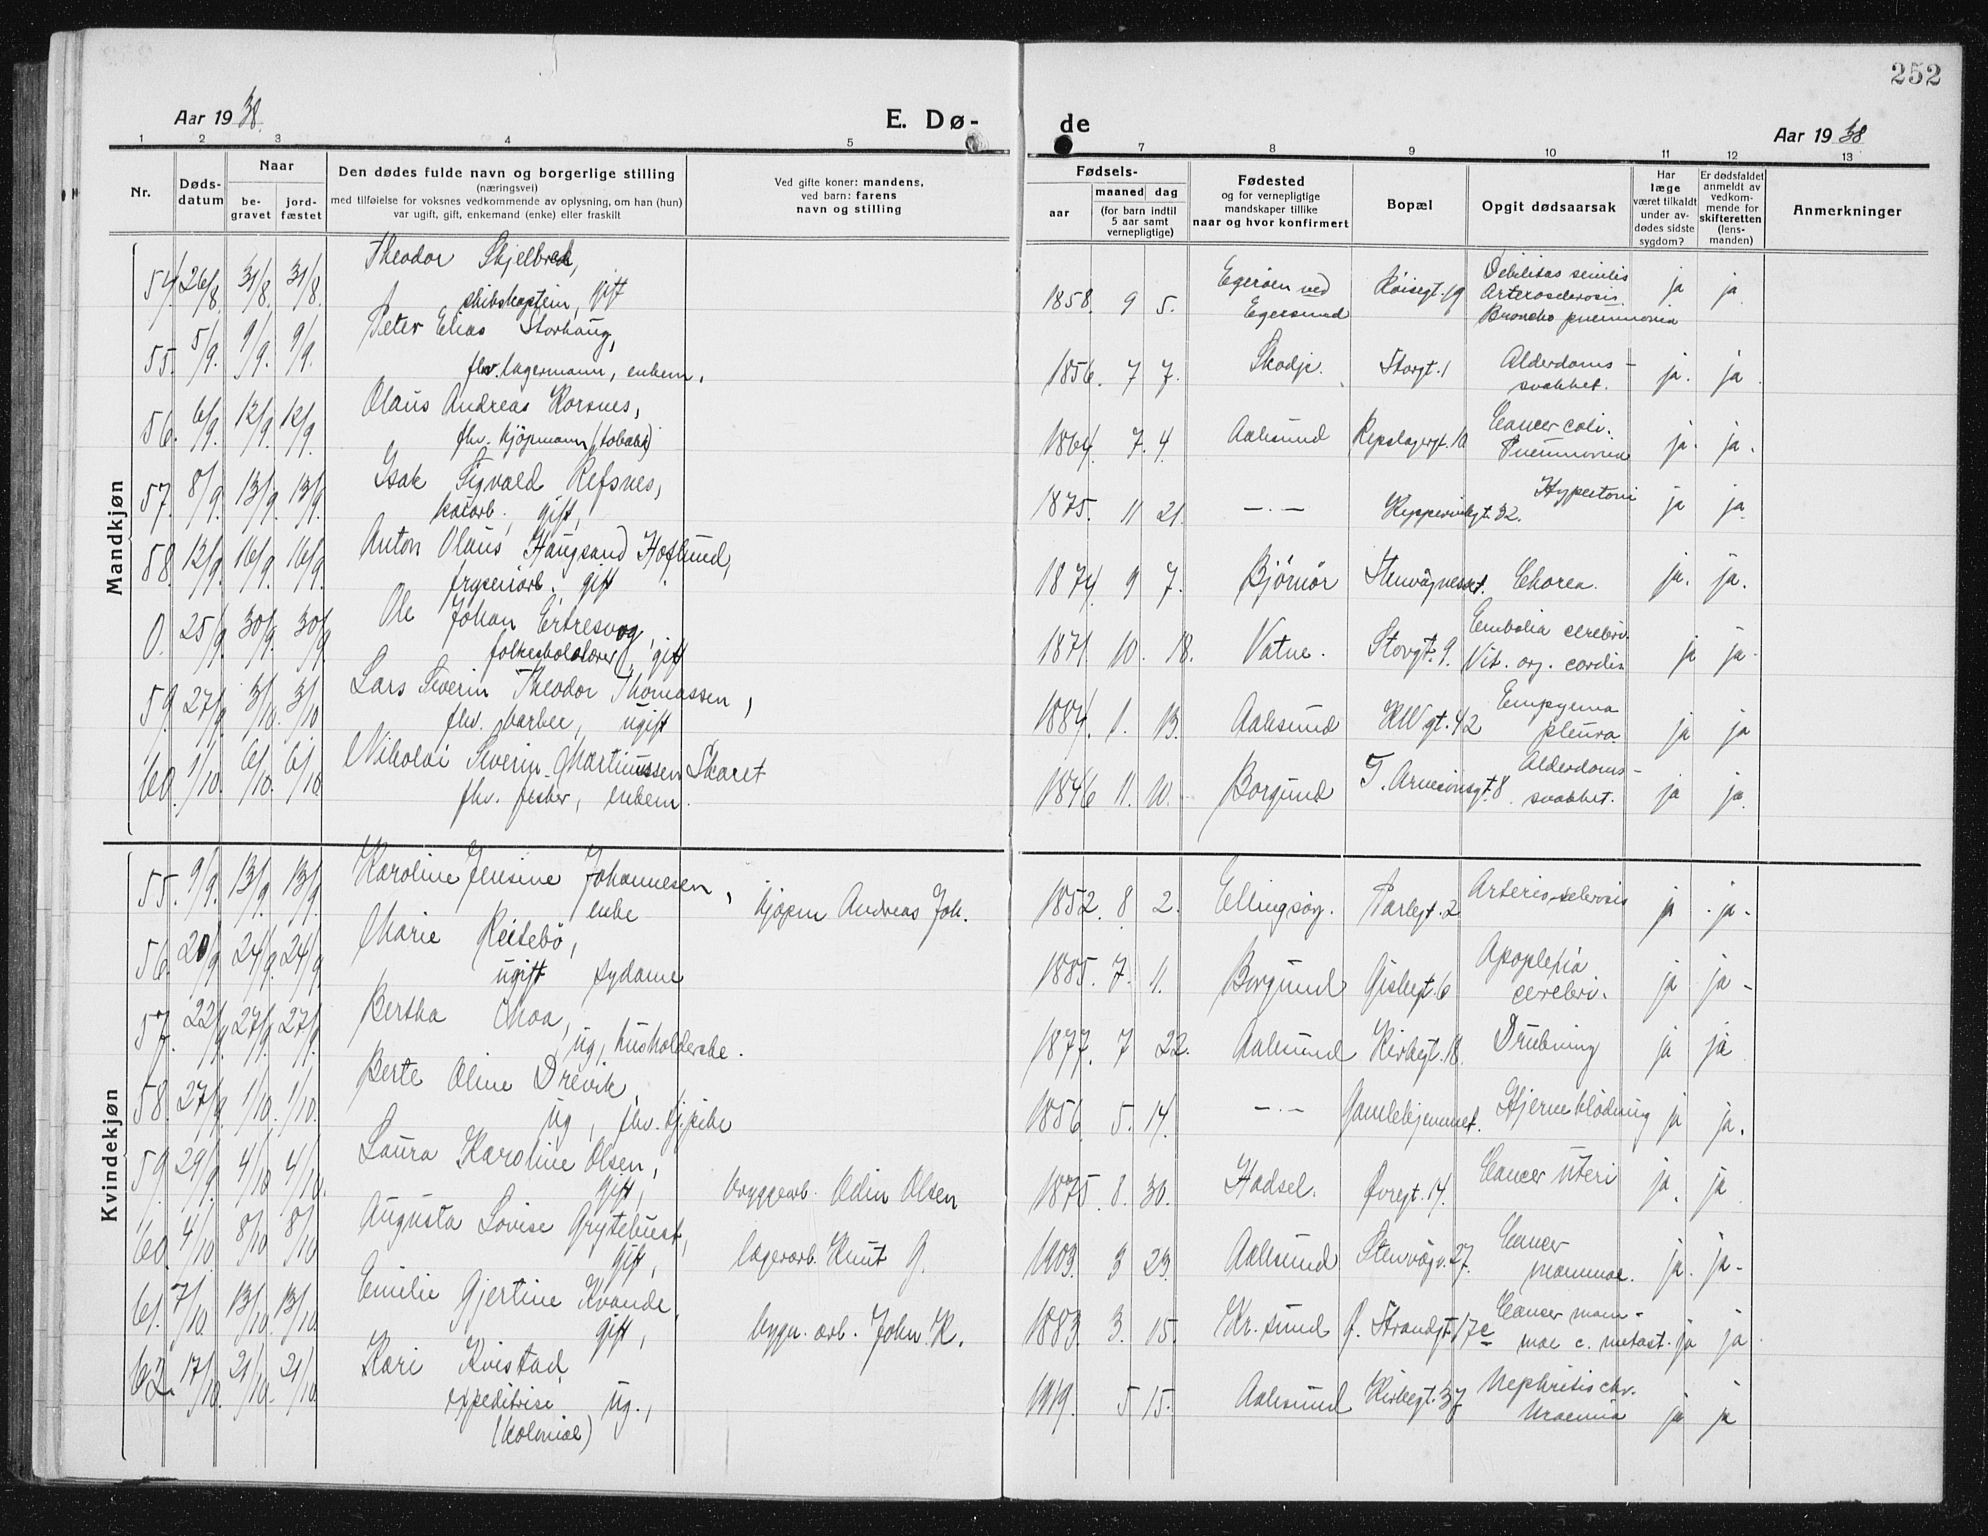 252
Aar 1938.
E. Dø-
de
Aar 1938
1 2 3 4 5 7 8 9 10 11 12 13
Nr.
Døds-
datum
Naar
be-
gravet
jord-
fæstet
Den dødes fulde navn og borgerlige stilling
(næringsvei)
med tilføielse for voksnes vedkommende av oplysning, om han (hun)
var ugift, gift, enkemand (enke) eller fraskilt
Ved gifte koner: mandens,
ved barn: farens
navn og stilling
Fødsels-
aar
maaned dag
(for barn indtil
5 aar samt
vernepligtige)
Fødested
og for vernepligtige
mandskaper tillike
naar og hvor konfirmert
Bopæl
Opgit dødsaarsak
Har
læge
været tilkaldt
under av-
dødes sidste
sygdom?
Er dødsfaldet
anmeldt av
vedkom-
mende for
skifteretten
(lens-
manden)
Anmerkninger
Mandkjøn
Theodor Skjelbred,
54. 26/8. 31/8. 31/8. skibskaptein, gift
1858. 9 5. Egerøen ved Egersund
Debilitas senilis
Arterosclerosis.
Broncho pneumonia
ja ja
Peter Elias Storhaug,
55. 5/9. 9/9. 9/9. fhv. lagermann, enkem.
1856. 7 7. Skodje. Storgt. 1 Alderdoms-
svakhet. ja. ja
Olaus Andreas Korsnes,
56. 6/9. 12/9. 12/9. fhv. kjøpmann (tobakk)
1864. 7. 4. Aalesund Repslagergt. 10 Cancer coli.
Pneumonia ja. ja.
Isak Sigvald Refsnes,
57. 8/9. 13/9. 13/9. kaiarb., gift,
1875. 11 21. —·— 32. Hypertoni ja ja.
Anton Olaus Haugsand Hoflund,
58. 12/9. 16/9. 16/9. fryseriarb., gift
1874. 9 7. Bjørnør Chorea. ja. ja.
Ole Johan Ertresvåg,
0. 25/9. 30/9. 30/9. folkeskolelærer, gift
1871 10. 18. Vatne. Storgt. 9. Embolia cerebri.
Vit. org. cordis ja ja.
Lars Severin Theodor Thomassen,
59. 27/9. 3/10. 3/10 fhv. barber, ugift
1884. 1. 13. Aalesund KW gt. 42 Empyema
pleura. ja ja
Nikolai Severin Martinussen Skaret
60. 1/10. 6/10. 6/10 fhv. fisker, enkem.
1846 11. 10. Borgund T. Arnesonsgt. 8 Alderdoms-
svakhet. ja ja.
Kvindekjøn
Karoline Jensine Johannesen,
55. 9/9. 13/9. 13/9. enke kjøpm Andreas Joh.
1852. 8 2. Ellingsøy. Parkgt. 2 Arteriosclerosis ja ja.
Marie Reitebø,
56. 20/9 24/9. 24/9 ugift sydame
1885. 7. 11. Borgund Giskegt. 6 Apoplexia
cerebri. ja ja
Bertha Moa,
57. 22/9. 27/9. 27/9. ug, husholderske.
1877. 7 22. Aalesund Kirkegt. 18. Drukning ja ja
Berte Oline Drevik
58. 27/9. 1/10. 1/10. ug, fhv. tj.pike
1856. 5. 14. —·— Gamlehjemmet. Hjerneblødning ja ja.
Laura Karoline Olsen,
59. 29/9. 4/10 4/10. gift, bryggearb. Odin Olsen
1875. 8. 30. Hadsel. Øvregt. 14. Cancer uteri ja. ja
Augusta Lovise Grytebust,
60. 4/10. 8/10 8/10 gift, lagerarb. Knut G.
1903. 3 23. Aalesund Stenvågv. 27. Cancer
mammae. ja. ja
Emilie Gjertine Kvande,
61. 7/10. 13/10. 13/10. gift, bygn. arb. John K.
1883. 3. 15. Kr.sund Ø. Strandgt. 17c Cancer mam-
mae c. metast. ja ja
Kari Kvistad
62. 17/10. 21/10. 21/10 expeditrise ug.,
(kolonial)
1919. 5 15. Aalesund Kirkegt. 37 Nephritis chr.
Uraemia ja ja